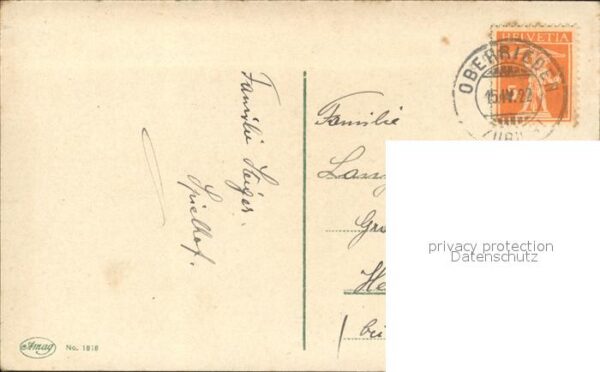 HELVETIA
OBERRIEDEN
15.IV.22
Familie Steiger.
Spielhof.
Familie
privacy protection
Datenschutz
Amag No. 1818